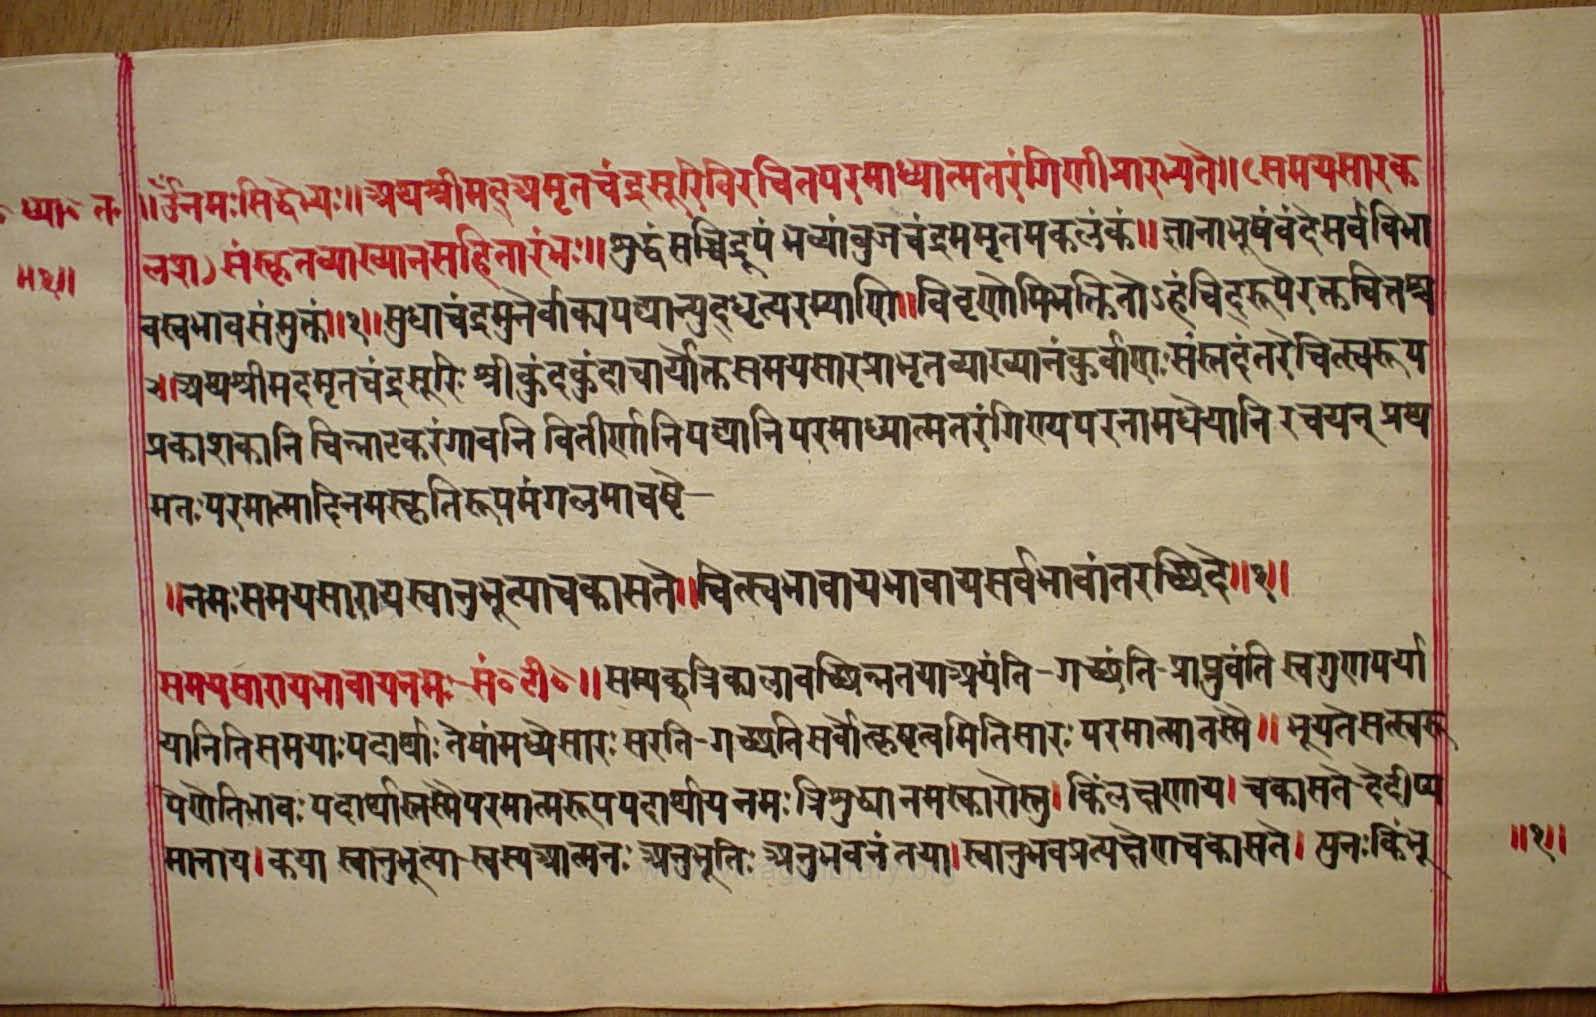 ध्या॰ त॰
॥१॥
॥ॐनमःसिद्धेभ्यः॥अथश्रीमत्अमृतचंद्रसूरिविरचितपरमाध्यात्मतरंगिणीप्रारभ्यते॥(समयसारक
लशा)संस्कृतव्याख्यानसहितारंभः॥शुद्धंसच्चिद्रूपं भव्यांबुजचंद्रममृतमकलंकं॥ज्ञानाभूषंवंदेसर्वविभा
वस्वभावसंमुक्तं॥१॥सुधाचंद्रमुनेर्वाक्यपद्यान्युद्धृत्यरम्याणि॥विवृणोमिभक्तितोऽहंचिद्रूपेरक्तचित्तश्च
२॥अथश्रीमदमृतचंद्रसूरिः श्रीकुंदकुंदाचार्योक्तसमयसारप्राभृतव्याख्यानंकुर्वाणःसंस्तदंतरेचित्स्वरूप
प्रकाशकानि चिन्नाटकरंगावनि वितीर्णानिपद्यानिपरमाध्यात्मतरंगिण्यपरनामधेयानि रचयन् प्रथ
मतःपरमात्मादिनमस्कृतिरूपमंगलमाचष्टे—
॥नमःसमयसारायस्वानुभूत्याचकासते॥चित्स्वभावायभावायसर्वभावांतरच्छिदे॥१॥
समयसारायभावायनमः—सं॰टी॰॥सम्यक्त्रिकालावच्छिन्नतयाअयंति-गच्छंति-प्राप्नुवंति स्वगुणपर्या
यानितिसमयाःपदार्थाः तेषांमध्येसारः सरति-गच्छतिसर्वोत्कृष्टत्वमितिसारः परमात्मातस्मै॥भूयतेसत्स्वरू
पेणेतिभावः पदार्थास्तस्मैपरमात्मरूपपदार्थायनमः त्रिशुध्यानमस्कारोस्तु।किंलक्षणाय।चकासते-देदीप्य
मानाय।कया स्वानुभूत्या-स्वस्यआत्मनः अनुभूतिः अनुभवनंतया।स्वानुभवप्रत्यक्षेणचकासते। पुनःकिंभू
॥१॥